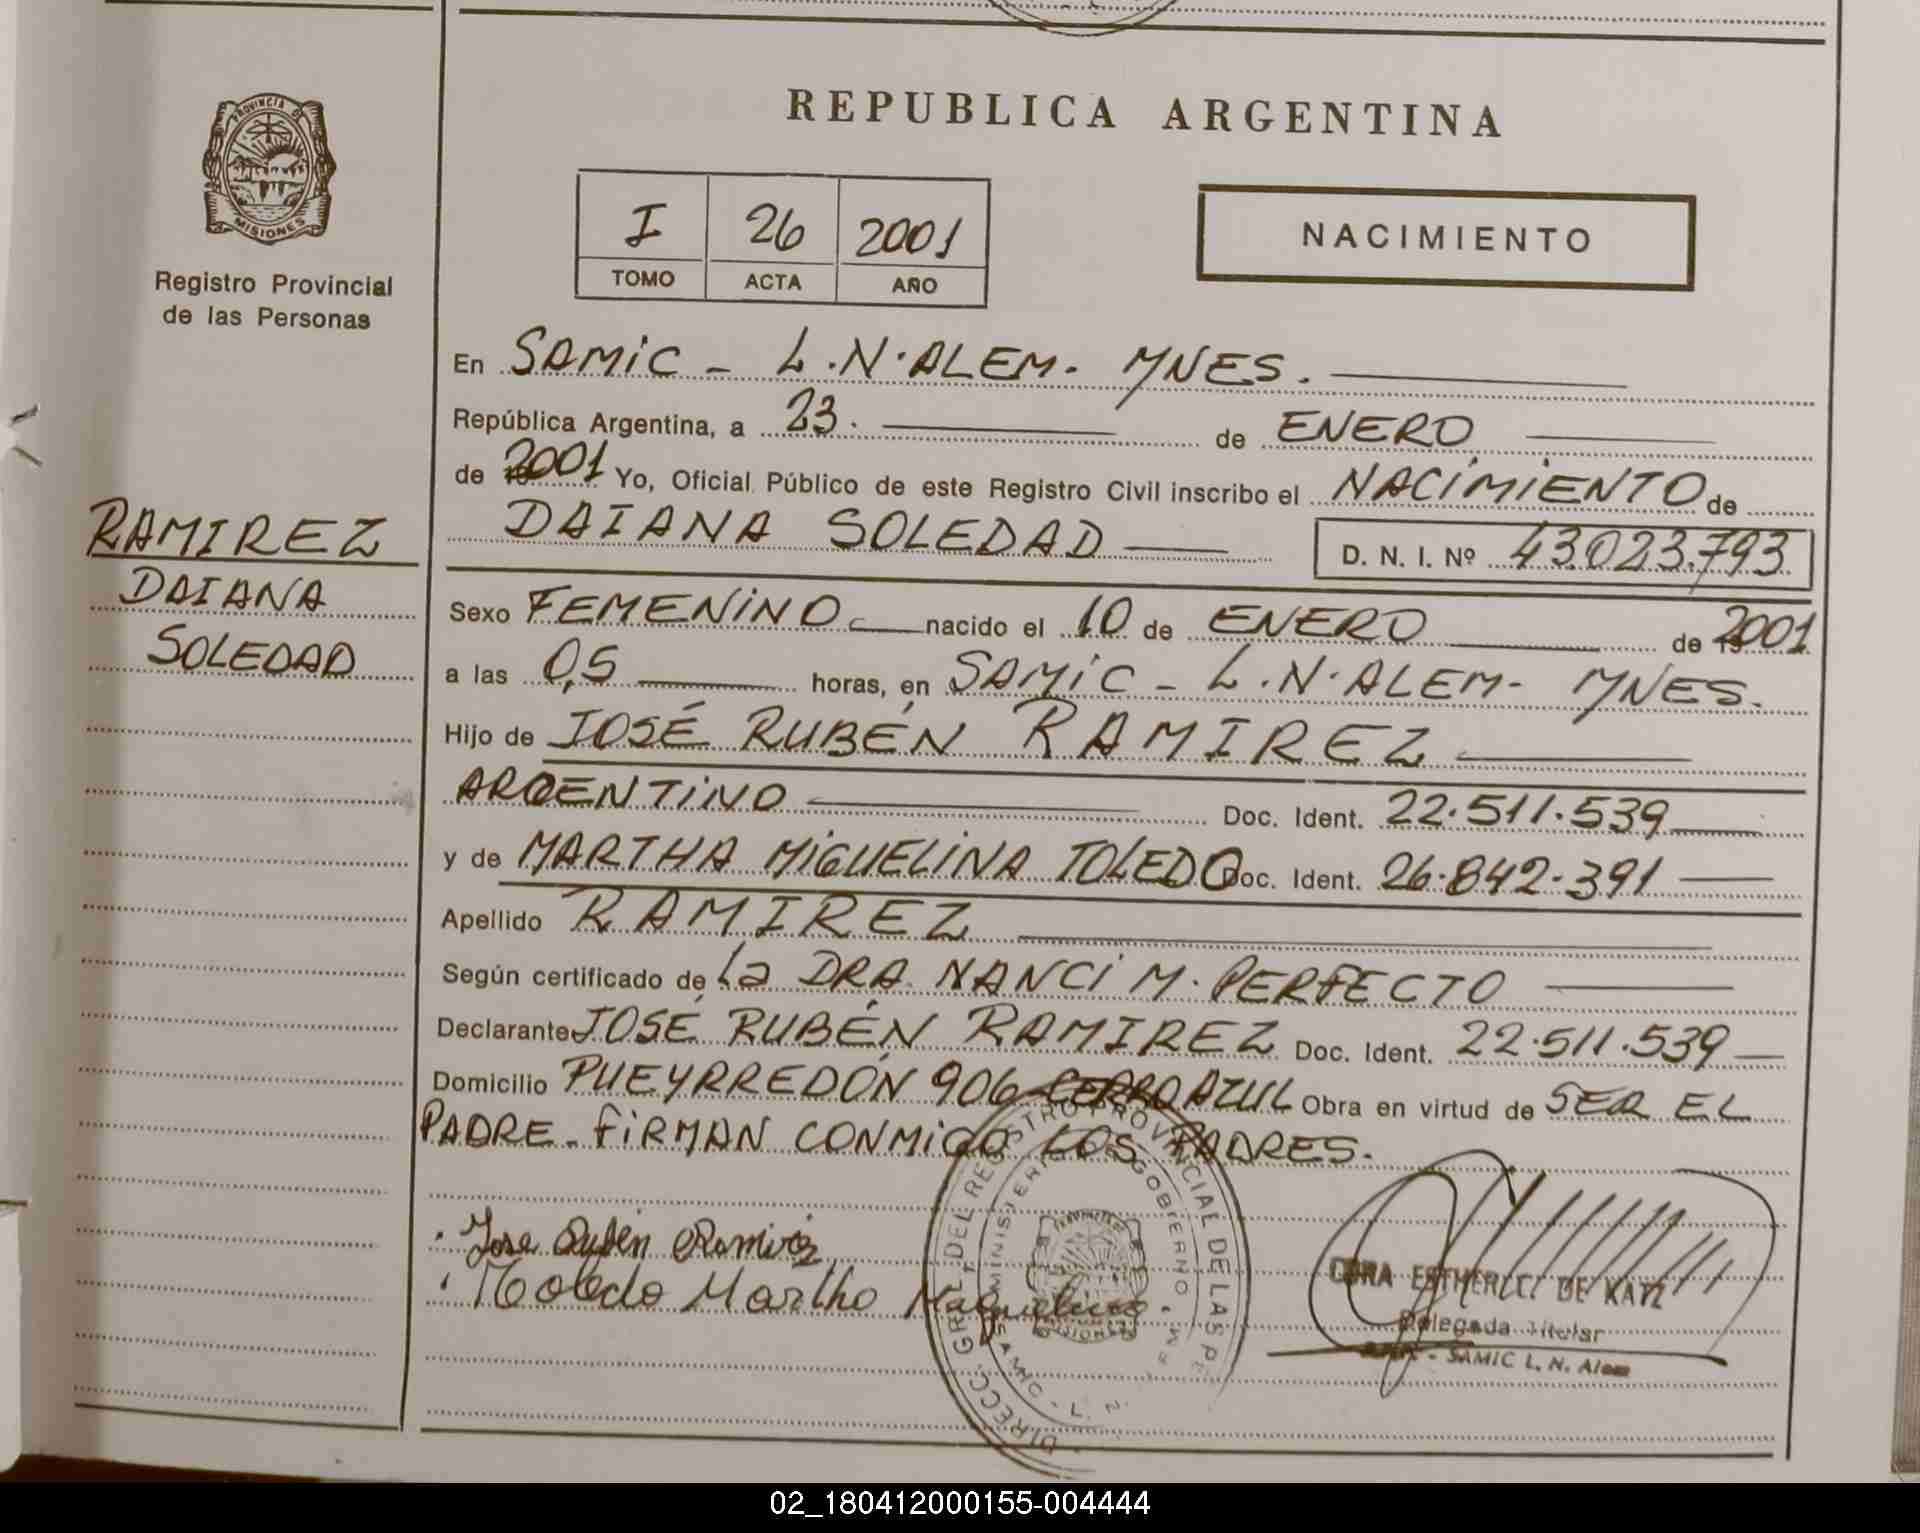 REPUBLICA ARGENTINA
PROVINCIA DE
MISIONES
Registro Provincial
de las Personas
I 26 2001
TOMO ACTA AÑO
NACIMIENTO
En SAMIC - L.N.ALEM. MNES.
República Argentina, a 23. de ENERO
de 2001 Yo, Oficial Público de este Registro Civil inscribo el NACIMIENTO de
DAIANA SOLEDAD D. N. I. Nº 43.023.793
RAMIREZ
DAIANA
SOLEDAD
Sexo FEMENINO nacido el 10 de ENERO de 2001
a las 0,5 horas, en SAMIC - L.N.ALEM- MNES.
Hijo de JOSÉ RUBÉN RAMIREZ
ARGENTINO Doc. Ident. 22.511.539
y de MARTHA MIGUELINA TOLEDO Doc. Ident. 26.842.391
Apellido RAMIREZ
Según certificado de la DRA. NANCI M. PERFECTO
Declarante JOSÉ RUBÉN RAMIREZ Doc. Ident. 22.511.539
Domicilio PUEYRREDÓN 906 CERRO AZUL Obra en virtud de SER EL
PADRE - FIRMAN CONMIGO LOS PADRES.
Jose Rubén Ramirez
Toledo Martha Miguelina
DIRECC. GRAL. DEL REGISTRO PROVINCIAL DE LAS PE
MINISTERIO DE GOBIERNO
SAMIC - L. N.
MISIONES
ESTHER DE KATZ
Delegada Titular
- SAMIC L. N. Alem
02_180412000155-004444